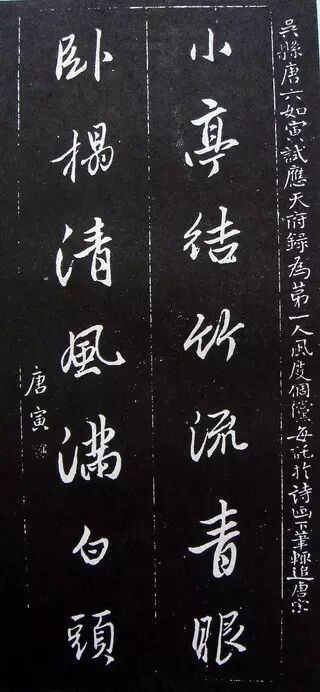 吴縣唐六如寅試應天府錄為第一人風度個儻每託於詩画下筆輒追唐宗
小亭结竹流青眼
卧榻清風满白頭
唐寅